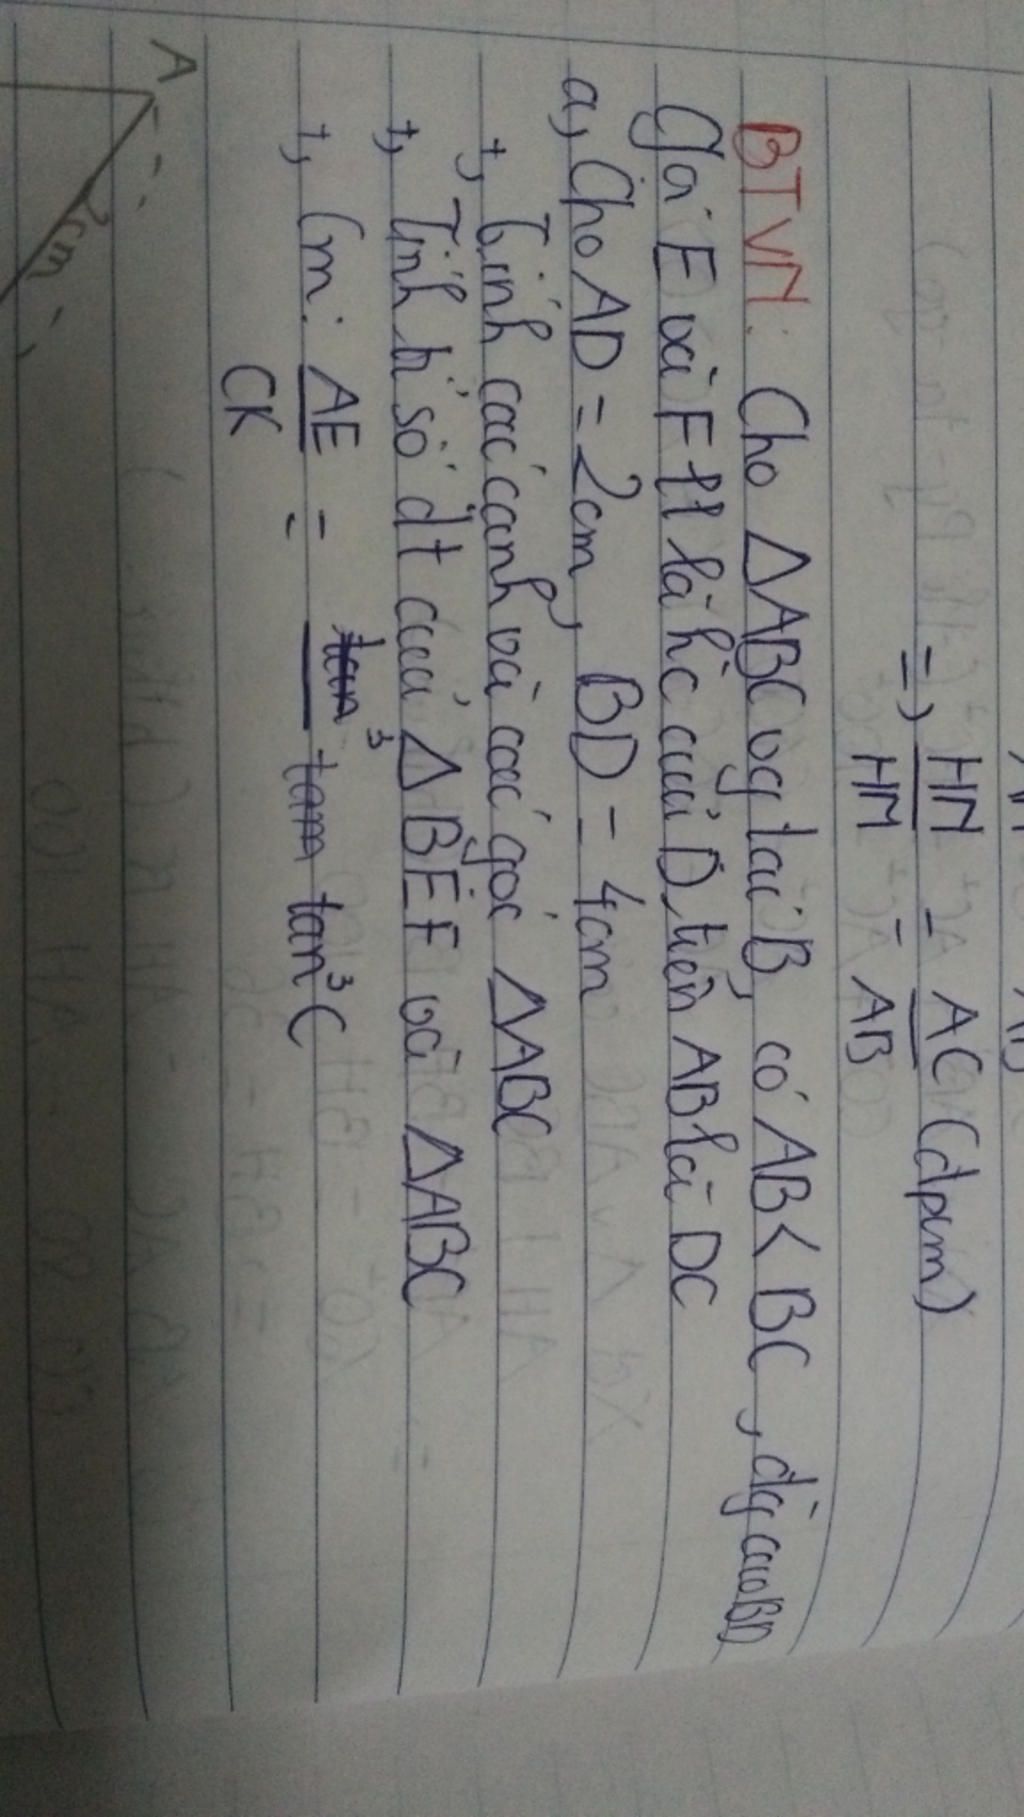 => HN = AC (đpcm)
HM AB
BTVN: Cho ΔABC vg tại B, có AB < BC, đg cao BD
Gọi E và F ll là hc của D trên AB lại DC
a, Cho AD = 2cm, BD = 4cm
+, Tính các cạnh và các góc ΔABC
+, Tính tỉ số dt của ΔBEF và ΔABC
+, Cm: AE = tan³C
CK
A
2cm